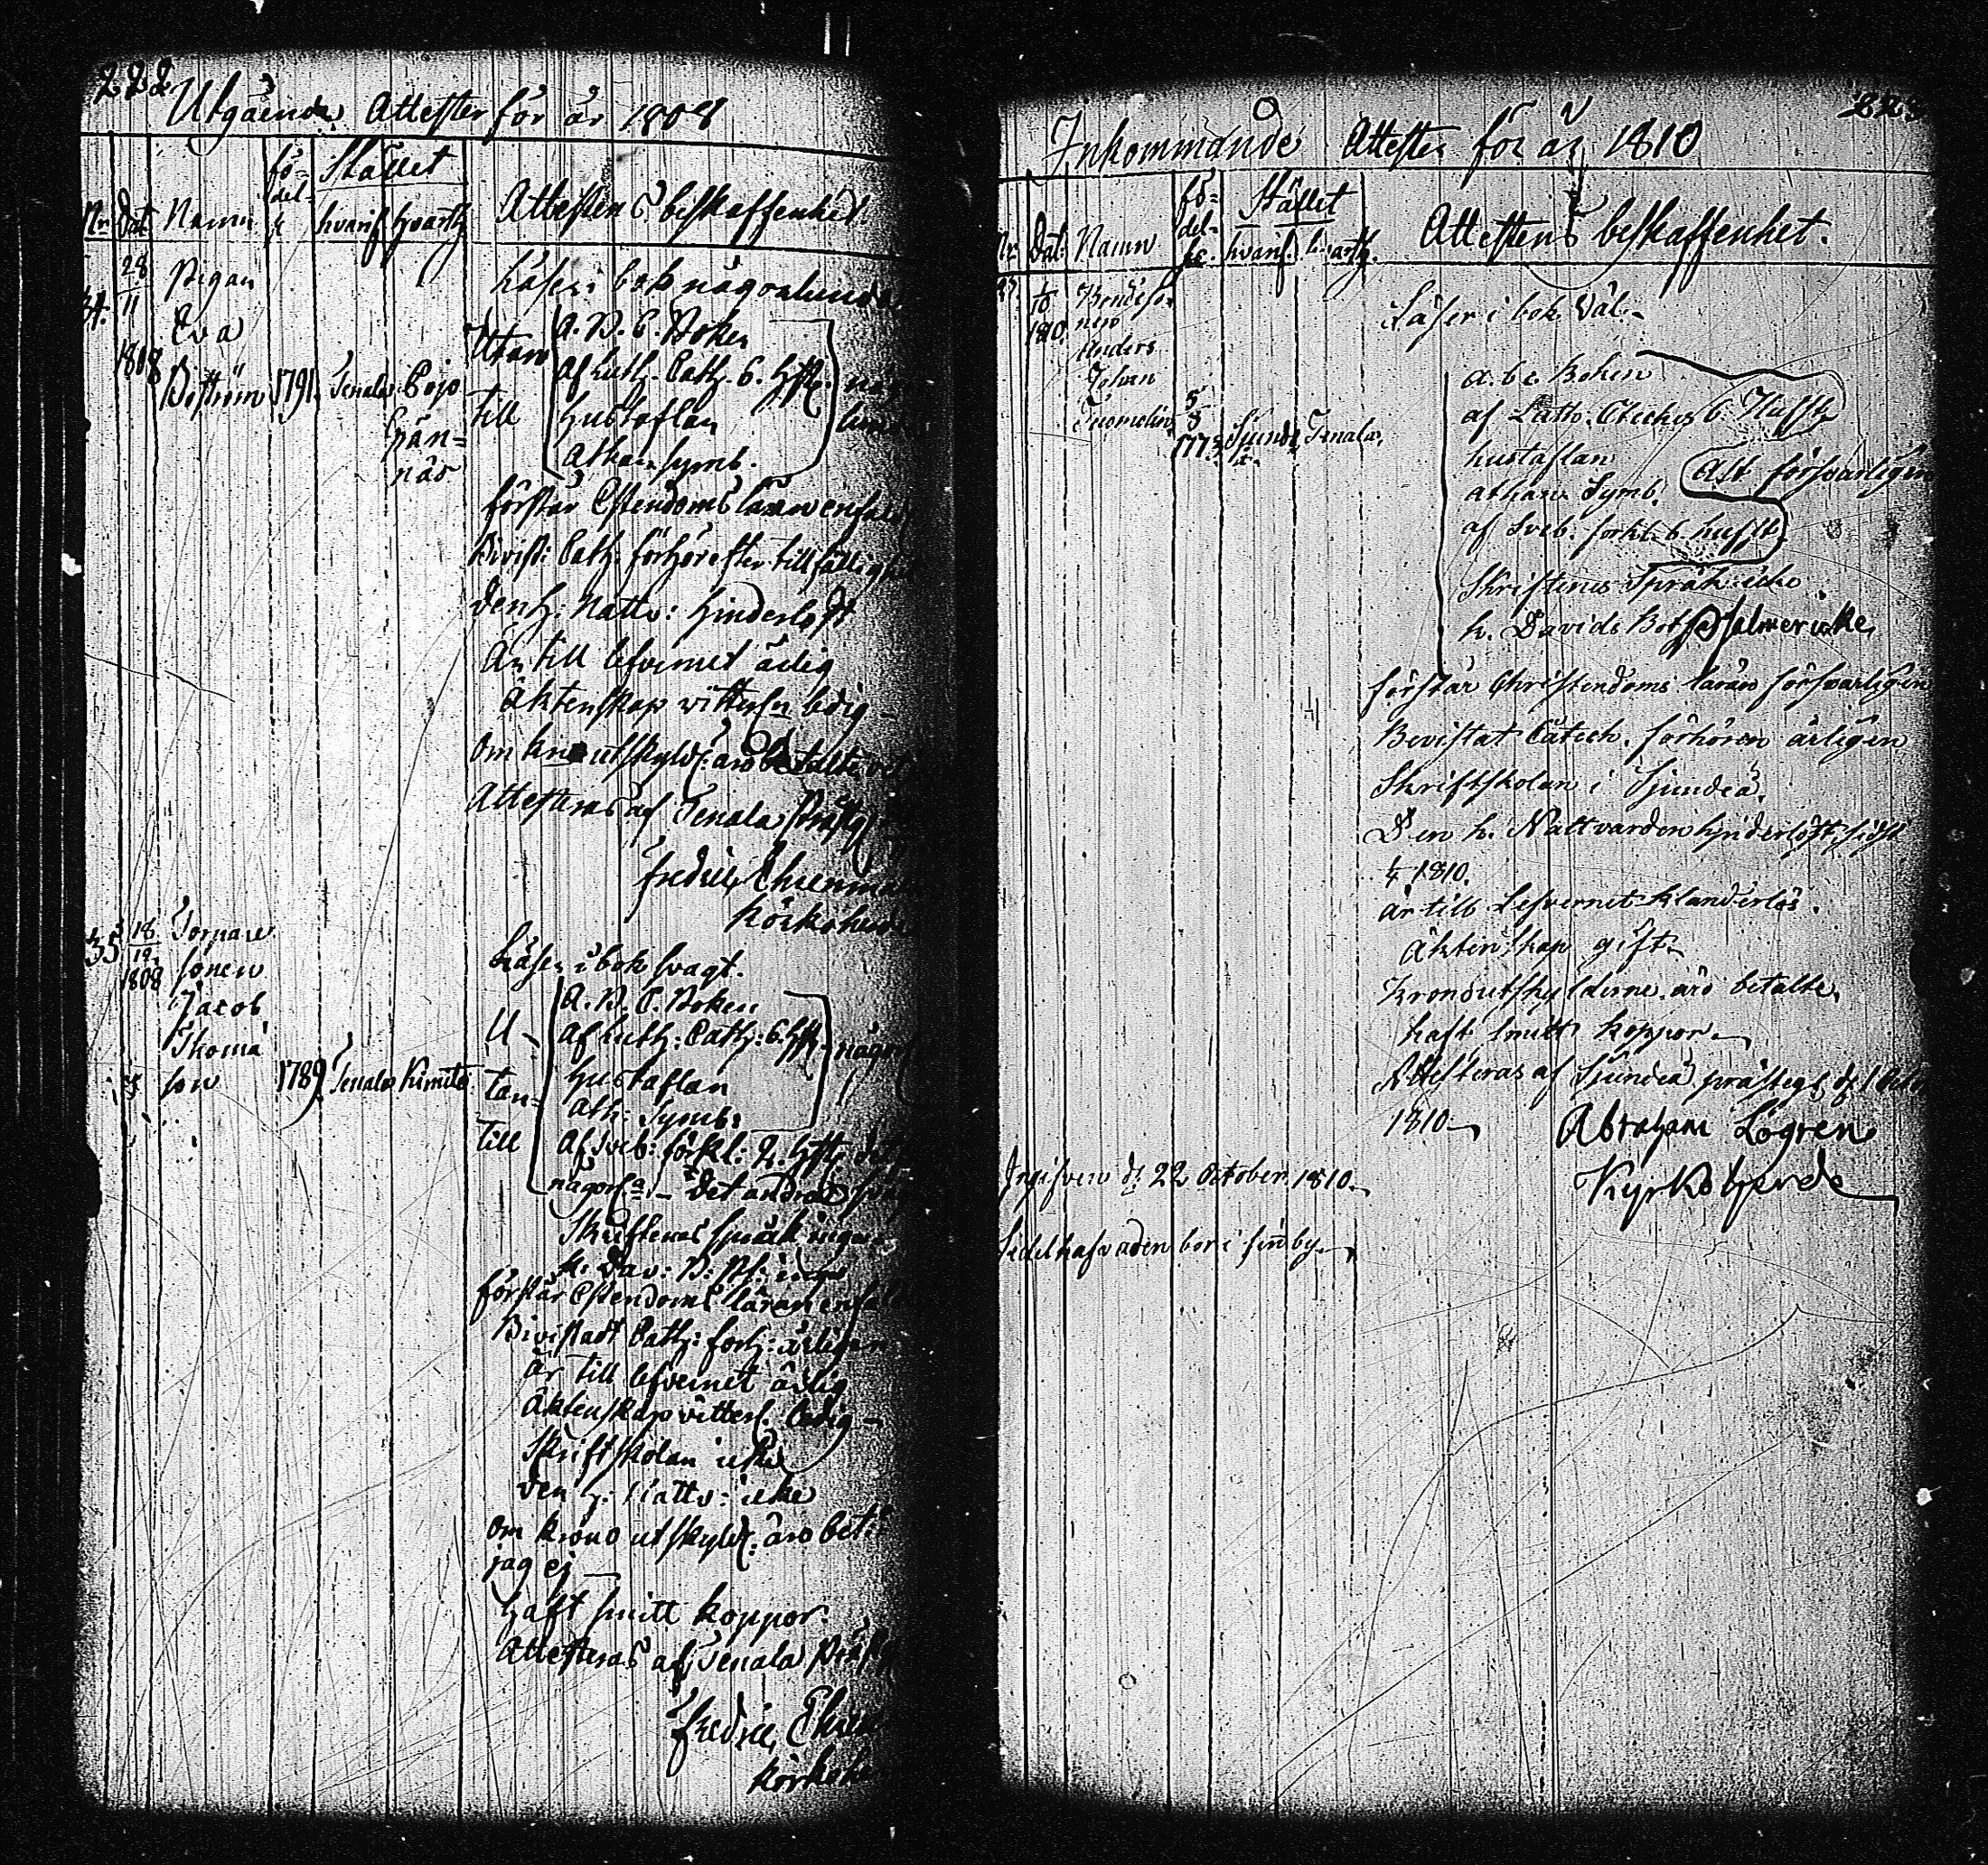 222
Utgående Attester för år 1808
Nr. Dat. Namn födel-år Stället hvarif. hvarth. Attestens beskaffenhet
34. 28/11 1808 Pigan Eva Boström 1791. Tenala Pojo Spännäs
Läser i bok någorlunda
Utan till
A. B. C. Boken
af Luth. Cath. 6. Hfst.
Hustaflan
Athan. Symb.
förstår Chstendoms läran enfald
Bevist: Cath. förhör efter tillfällighet
den H. Nattv: hinderlöst
Är till lefvernet ärlig
äktenskap vitterl. ledig
om kro utskyld: äro betalte vet
Attesteras af Tenala Prästg
Fredric Ehrenma
Körkoherde
35 18/12 1808 Tornare sonen Jacob Thomasson 1789. Tenala Kimito
Läser i bok svagt.
Utan till
A. B. C. Boken
af Luth: Cath: 6. Hfst.
Hustaflan
Ath: Symb:
af Sveb: förkl: 2. Hfst. det
någorl. – det andra
Skriftenes språk inga
K: Dav: B: Ps: inga
förstår Chstendoms läran enfald
Bivistadt Cath: förh: årligen
är till lefvernet ärlig
äktenskap vitterl. ledig –
Skriftskolan icke
den H: Nattv: icke
om krono utskyld: äro bet:
jag ej –
haft smitt koppor
Attesteras af Tenala Präst
Fredric Ehren
Körkohe
223
Inkommande Attester för år 1810
Nr. Dat: Namn födel-år. Stället hvarif. hvarth. Attestens beskaffenhet.
1810 Bondesonen Anders Johan Tuomolin 5/8 1773. Sjundeå. Tenala.
Läser i bok Väl.
a. b c. Boken
af Luth. Cteches 6. Hufst
hustaflan
athan. Symb.
Alt försvarligen
af Sveb. förkl. 6. hufst.
Skriftenes Språk icke
k. Davids Bot psalmer icke.
förstår Christendoms läran försvarligen
Bevistat Catech. förhören årligen
Skriftskolan i Sjundeå.
Den h. Nattvarden hinderlöst sidst
1810.
är till Lefvernet klanderlös.
Äktenskap gift.
Kronoutskylderne äro betalte.
haft smitt koppor.
Attesteras af Sjundeå prästeg. d. 1 Octo
1810
Abraham Lögren
Kyrkoherde
Ingifven d. 22 October. 1810.
Sedelhafvaden bor i Finby.